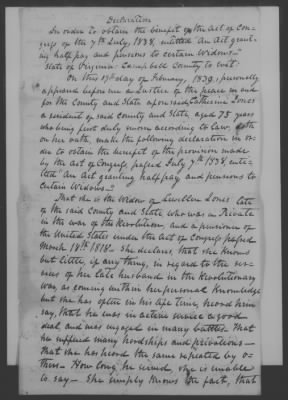 Declaration
In order to obtain the benefit of the Act of Con-
gress of the 7th July, 1838, entitled "An Act grant-
ing half pay and pensions to certain Widows"
State of Virginia Campbell County to wit:
On this 19th day of February, 1839, personally
appeared before me a Justice of the peace in and
for the County and State aforesaid Catherine Jones
a resident of said County and State, aged 75 years
who being first duly sworn according to law, doth
on her oath, make the following declaration in or-
der to obtain the benefit of the provision made
by the Act of Congress passed July 7th 1838 enti-
tled "An Act granting half pay and pensions to
Certain Widows"
That she is the Widow of Lewellen Jones late
of the said County and State who was a Private
in the war of the Revolution, and a pensioner of
the United States under the Act of Congress passed
March 18th 1818. She declares that she knows
but little, if any thing, in regard to the ser-
vices of her late husband in the Revolutionary
war, as coming within her personal knowledge
but she has often in his life time, heard him
say, that he was in active service a good
deal and was engaged in many battles. That
he suffered many hardships and privations—
that she has heard the same repeated by o-
thers— How long he served, she is unable
to say— She simply knows the fact, that